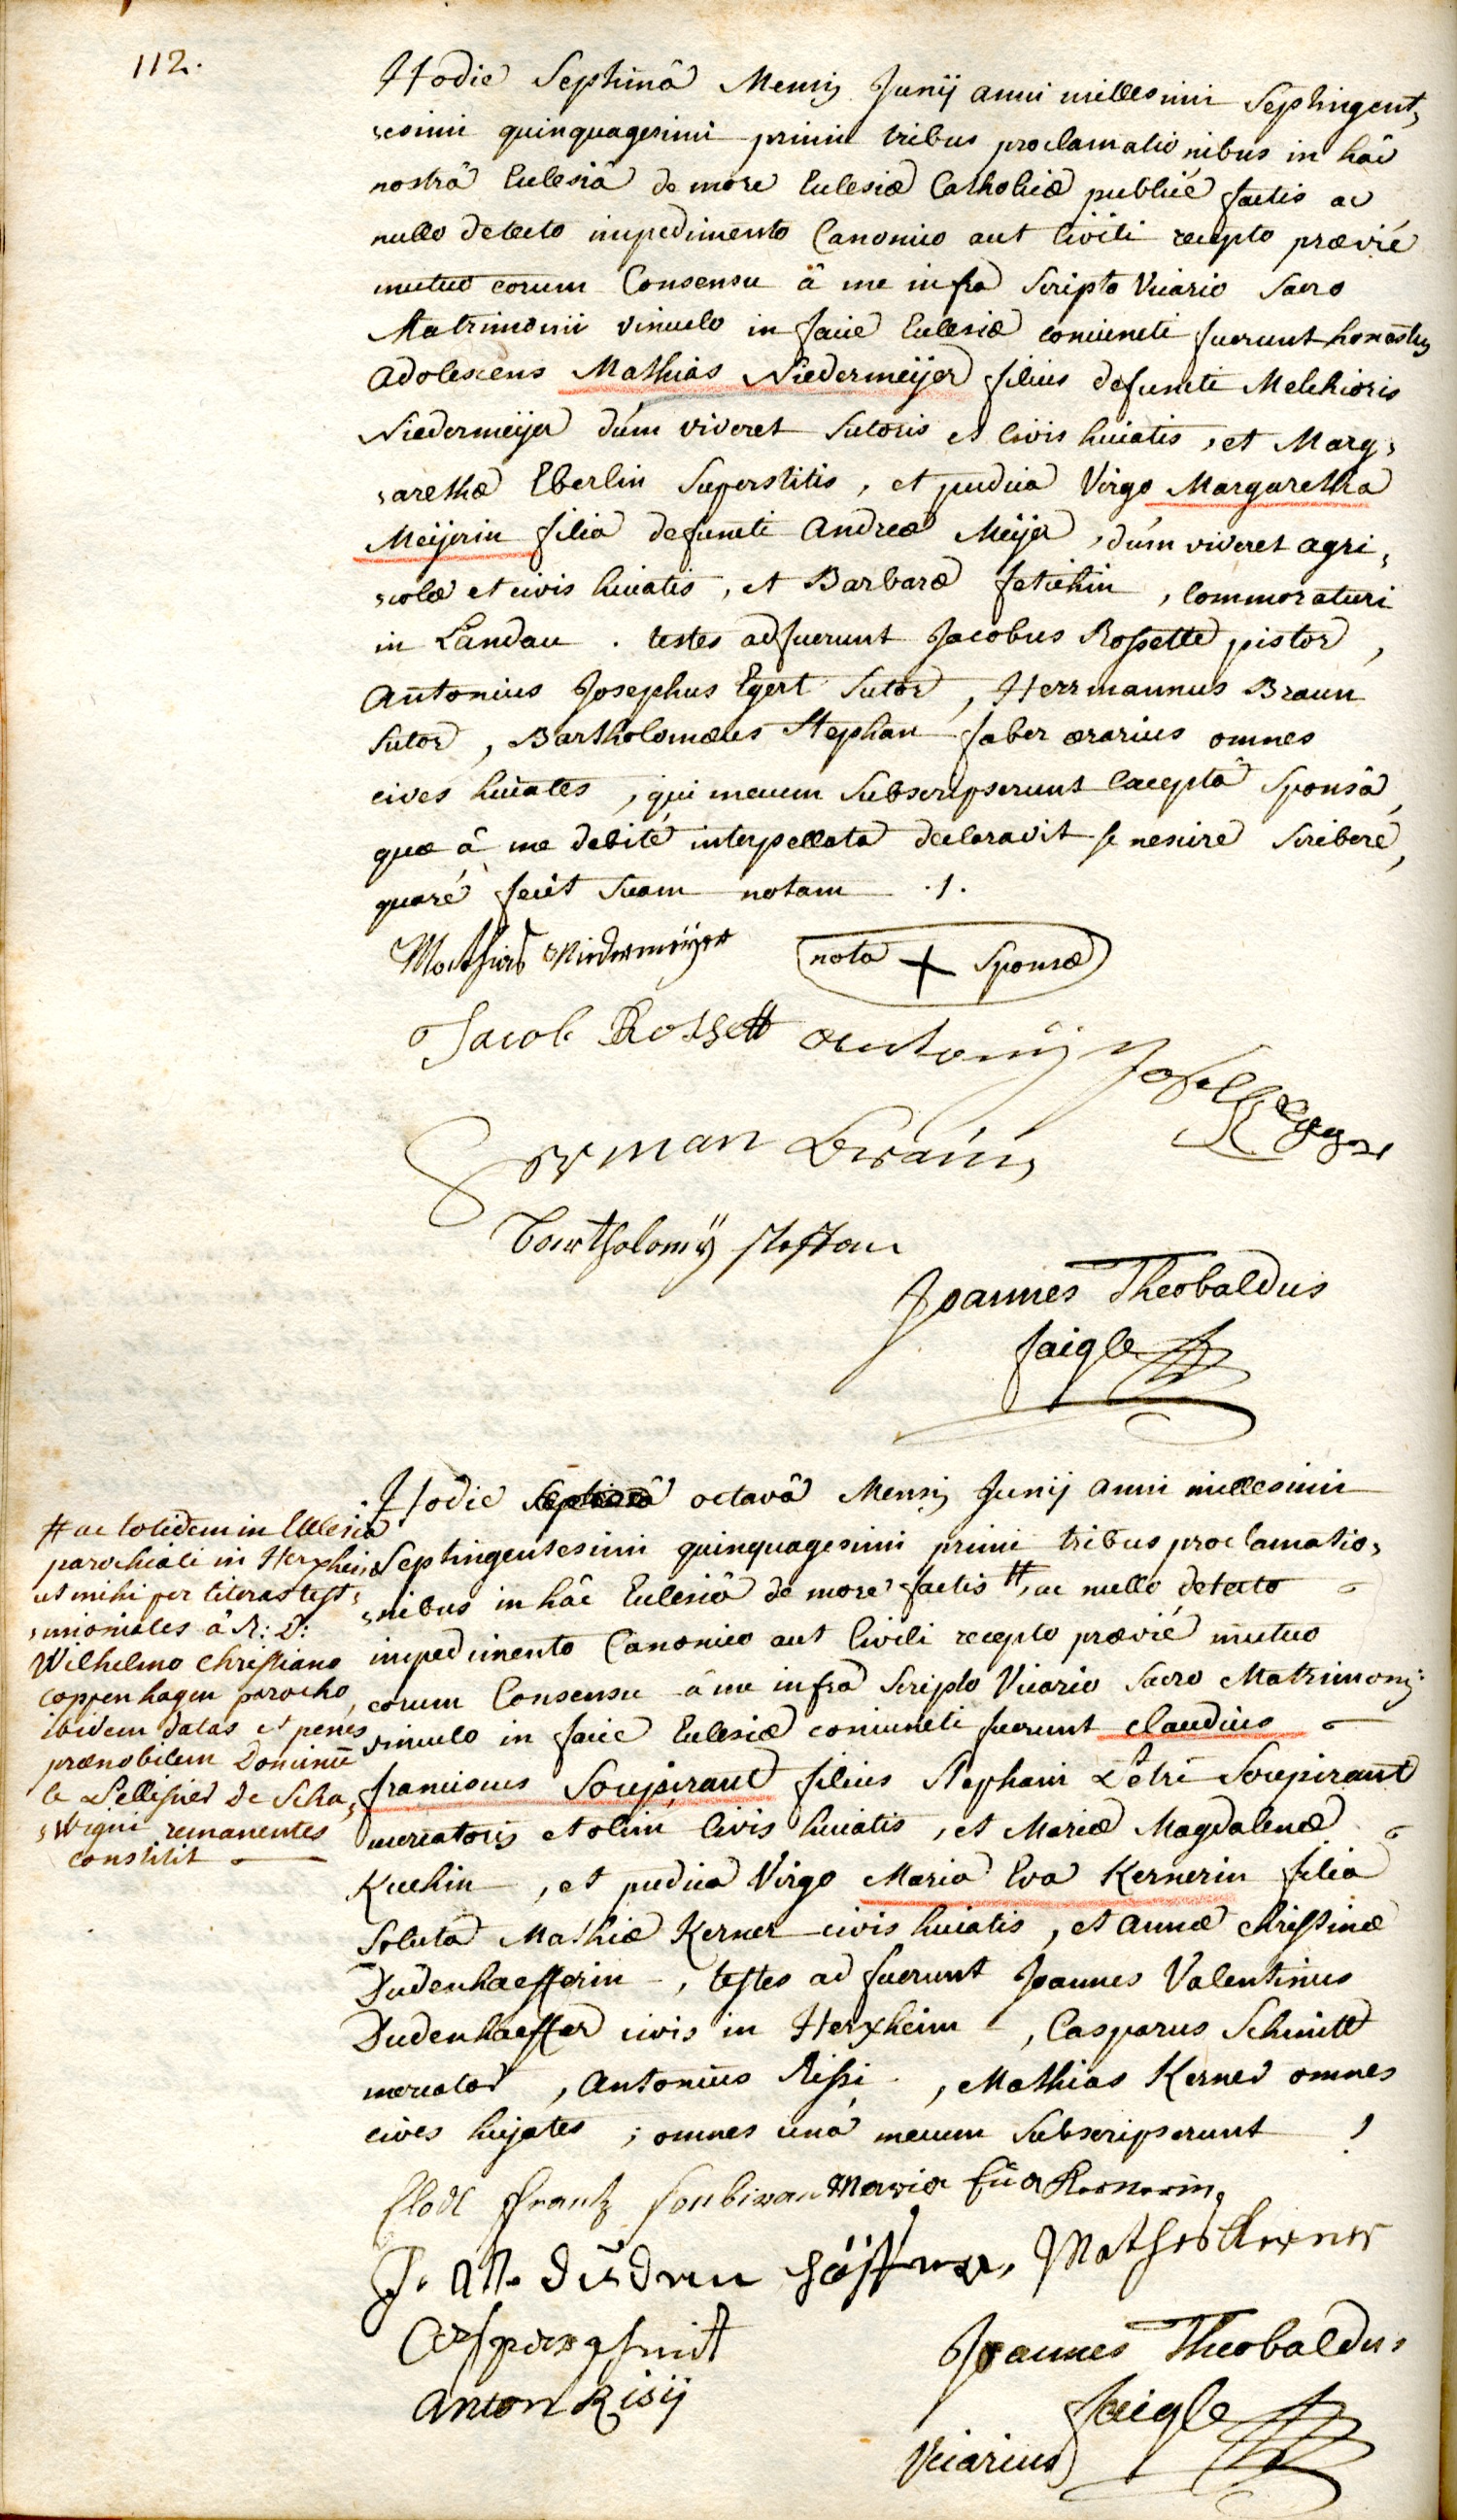 112.
Hodie Septimâ Mensis Junij anni millesimi Septingent,
,esimi quinquagesimi primi tribus proclamationibus in hâc
nostrâ Eclesiâ de more Eclesiæ Catholicæ publicé factis ac
nullo detecto impedimento Canonico aut Civili recepto prævié
mutuo eorum Consensu â me infra Scripto Vicario Sacro
Matrimonii vinculo in facie Eclesiæ coniuncti fuerunt honestus
adolescens Mathias Niedermeijer filius defuncti Melchioris
Niedermeijer dúm viveret Sutoris et Civis huiatis, et Marg,
,arethæ Eberlin Superstitis, et pudica Virgo Margaretha
Meijerin filia defuncti Andreæ Meijer, dúm viveret agri,
,colæ et civis huiatis, et Barbaræ fetichin, Commoraturi
in Landau. testes adfuerunt Jacobus Rossette pistor,
Antonius Josephus Egert Sutor, Herrmannus Braun
Sutor, Bartholomæus Stephan faber ærarius omnes
cives huiates, qui mecum Subscripserunt Excepta Sponsâ,
quæ â me debité interpellata declaravit se nescire Scribere,
quaré fecit Suam notam ./.
Mathias Niedermeijer nota + Sponsæ
Jacob Rossett Antonij Josepf Egert
Herman Braun
Bartholomÿ Steffan
Joannes Theobaldus
faigle
Hodie octavâ Mensis Junij anni millesimi
Septingentesimi quinquagesimi primi tribus proclamatio,
,nibus in hâc Eclesiâ de more factis #, ac nullo detecto
impedimento Canonico aut Civili recepto prævié mutuo
eorum Consensu â me infra Scripto Vicario Sacro Matrimonij
vinculo in facie Eclesiæ coniuncti fuerunt Claudius
franciscus Soupirant filius Stephani Petri Soupirant
mercatoris et olim Civis huiatis, et Mariæ Magdalenæ
Kuchin, et pudica Virgo Maria Eva Kernerin filia
Soluta Mathiæ Kerner civis huiatis, et Annæ Christinæ
Dudenhaefferin, testes ad fuerunt Joannes Valentinus
Dudenhaeffer civis in Herxheim, Casparus Schmitt
mercator, Antonius Rissi, Mathias Kerner omnes
cives hujates; omnes unâ mecum Subscripserunt
# ac totidem in Eclesia
parochiali in Herxheim
ut mihi per literas test,
,imoniales â R: D:
Wilhelmo Christiano
Coppenhagen parocho
ibidem datas et penés
prænobilem Dominū
le Pellisier de Scha,
,wigni remanentes
constitit
Clodt Frantz Soubiran Maria Eva Kernerin,
J. Dúdenhöffer, Mathes Kerner
Casper Schmitt
Anton Risij
Joannes Theobaldus
faigle
Vicarius